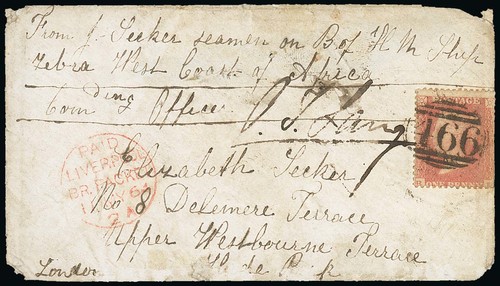 From J. Secker seamen on B of H M Ship
Zebra West Coast of Africa
Comding Officer
PAID
LIVERPOOL
BR. PACKET
Elizabeth Secker
No 8 Delemere Terrace
Upper Westbourne Terrace
Hyde Park
London
POSTAGE
466